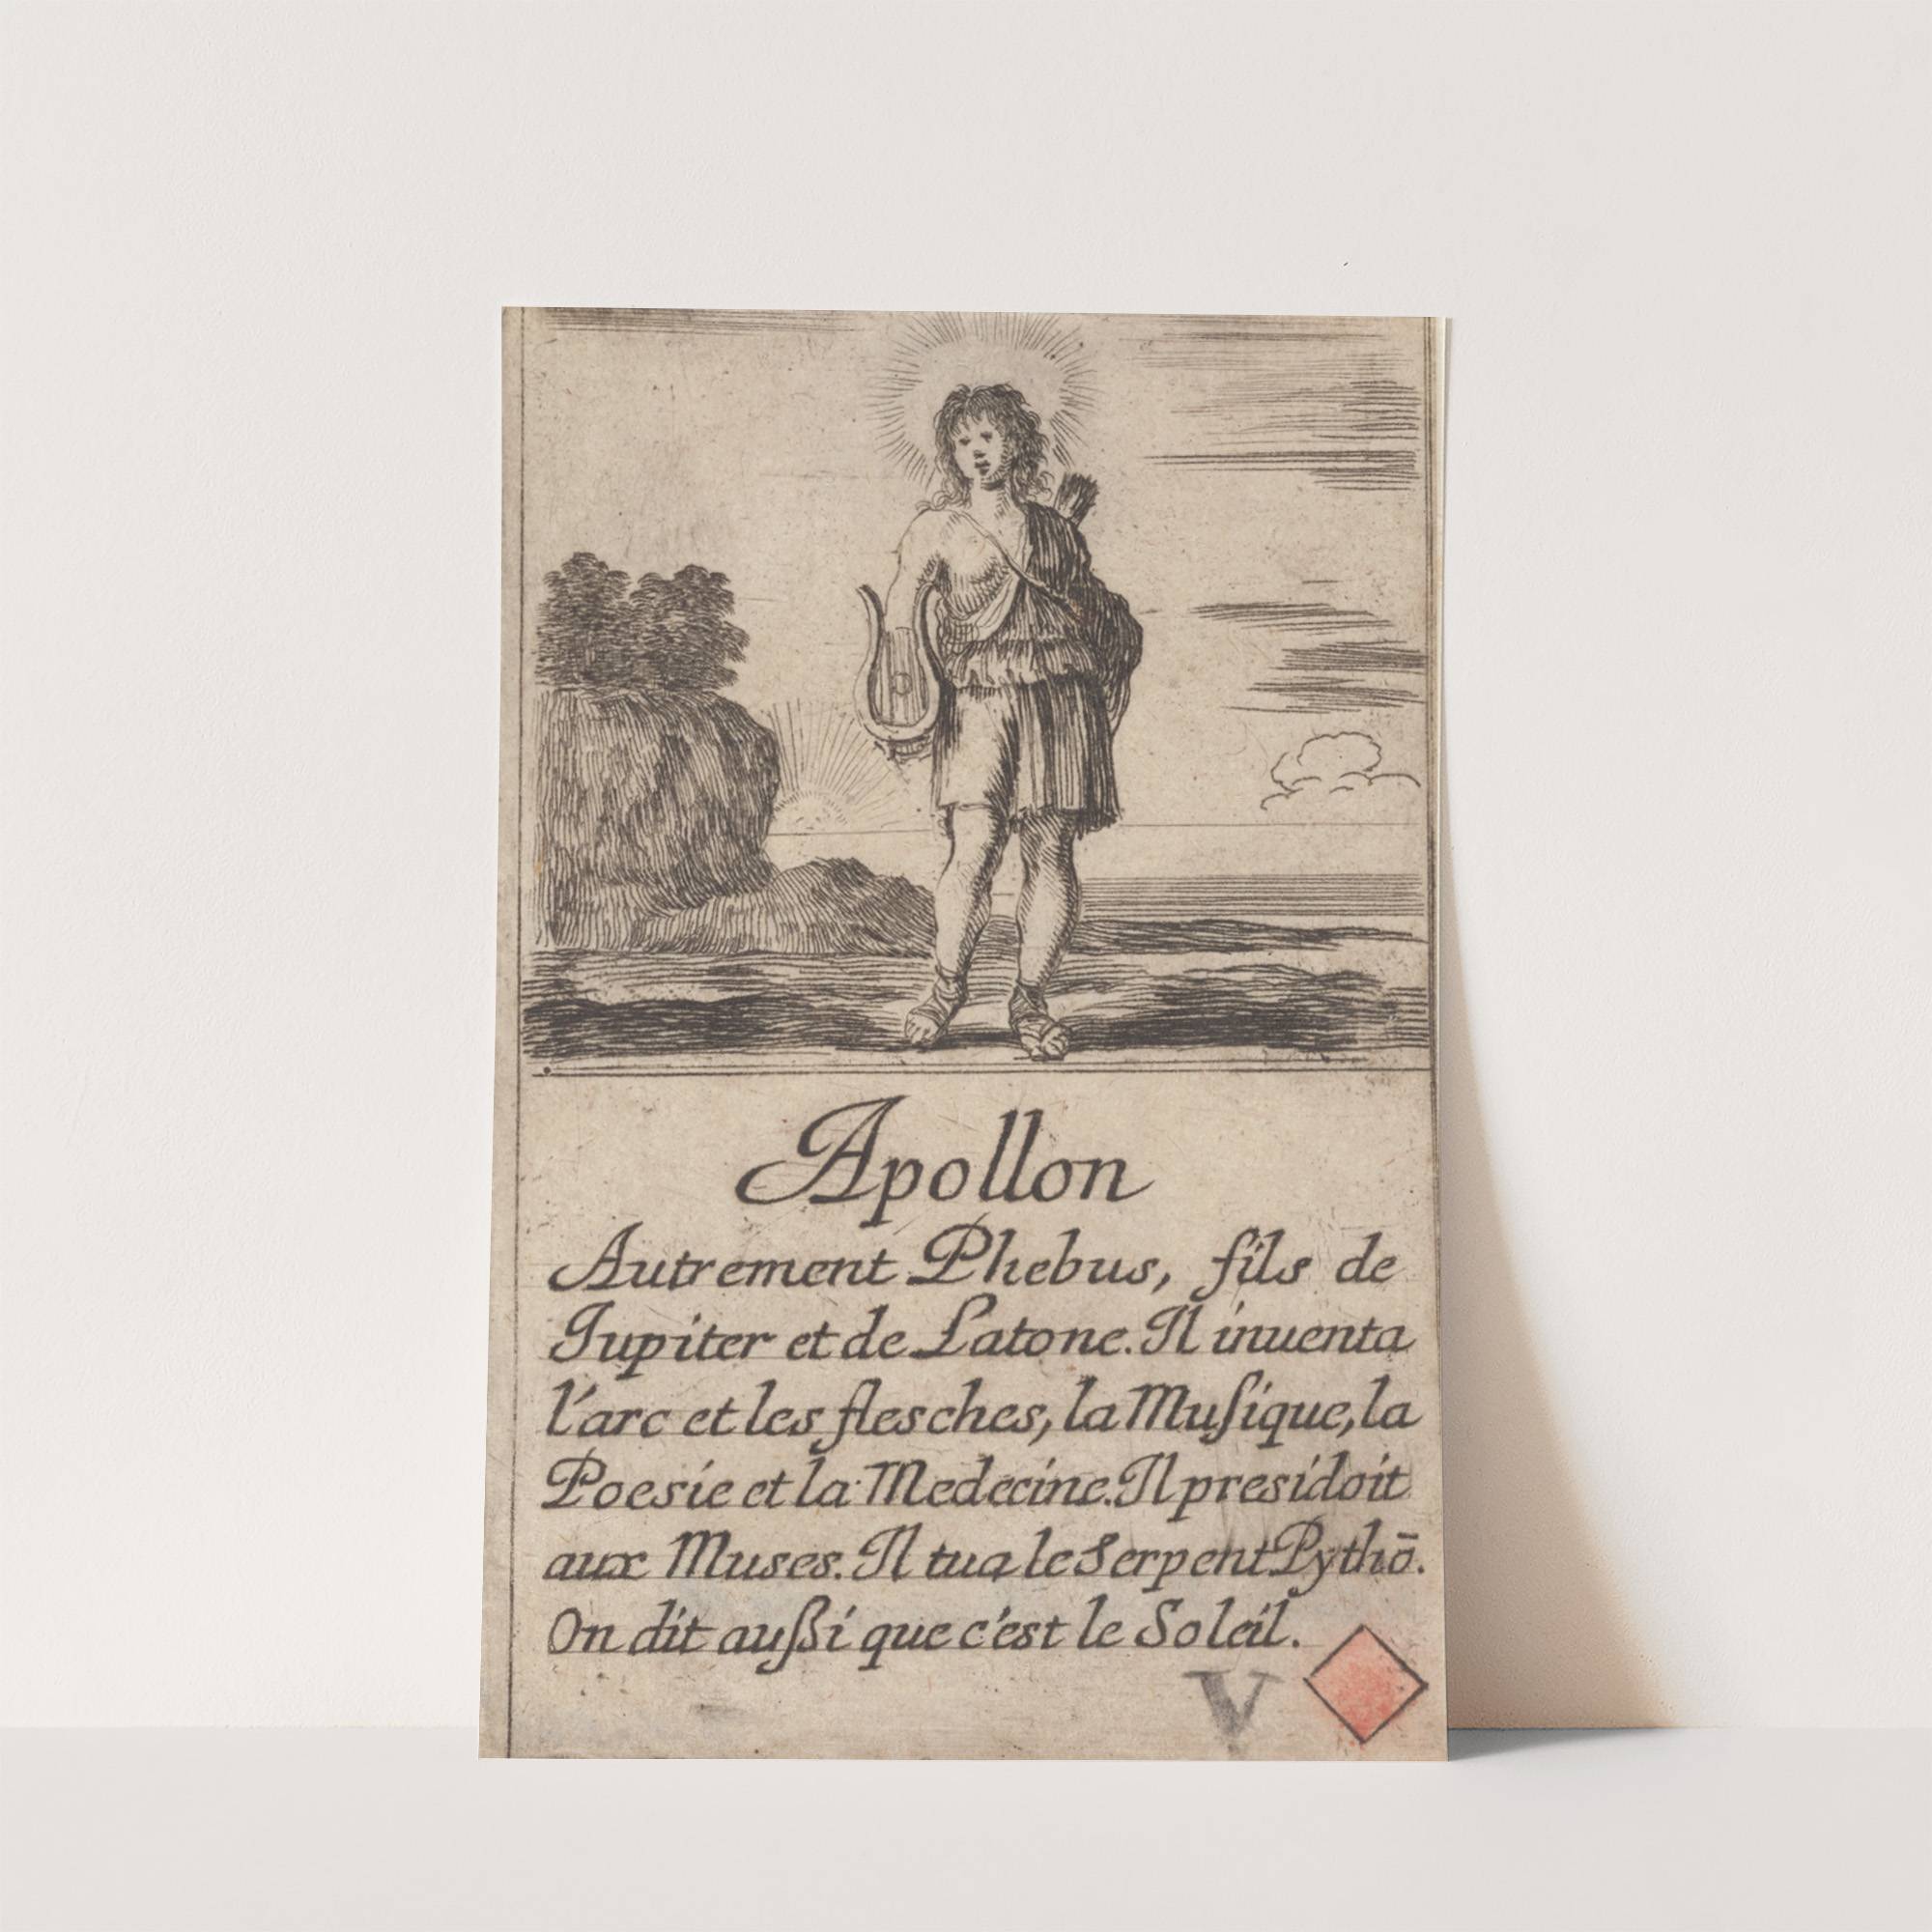 Apollon
Autrement Phebus, fils de
Iupiter et de Latone. Il inuenta
l'arc et les flesches, la Muſique, la
Poesie et la Medecine. Il presidoit
aux Muses. Il tua le Serpent Pythō.
On dit außi que c'est le Soleil.
V